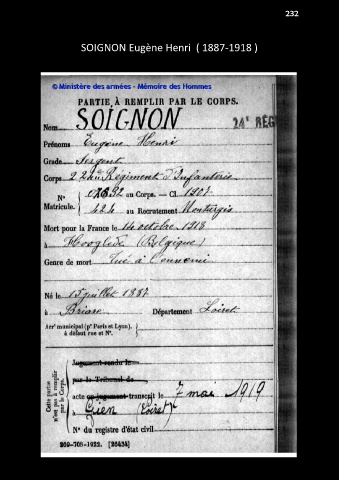 232
SOIGNON Eugène Henri ( 1887-1918 )
© Ministère des armées - Mémoire des Hommes
PARTIE À REMPLIR PAR LE CORPS.
Nom SOIGNON
24e RÉG
Prénoms Eugène Henri
Grade Sergent
Corps 224e Régiment d'Infanterie
N° Matricule. au Corps. — Cl. 1907
424 au Recrutement Montargis
Mort pour la France le 14 octobre 1918
à Hooglede (Belgique)
Genre de mort Tué à l'ennemi
Né le 15 juillet 1887
à Briare Département Loiret
Arr' municipal (p' Paris et Lyon),
à défaut rue et N°.
Cette partie n'est pas à remplir par le Corps.
Jugement rendu le
par le Tribunal de
acte ou jugement transcrit le 7 mai 1919
à Gien (Loiret)
N° du registre d'état civil
269-708-1922. [26434]